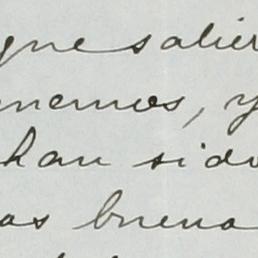 que salier
nemos, y
han sido
as buena